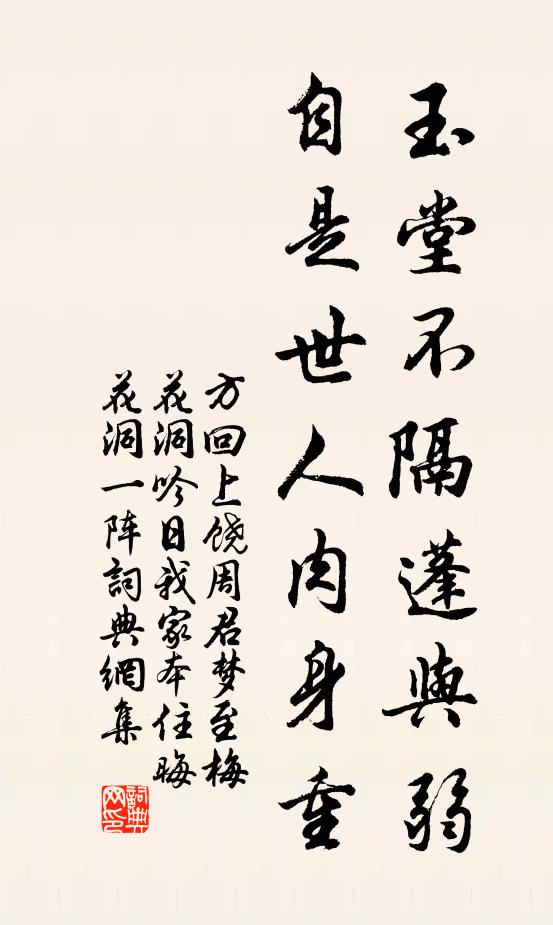 玉堂不隔蓬與弱
自是世人肉身重
方回上饶周君梦至梅
花洞吟日我家本住晦
花洞一阵詞典網集
詞典
网印